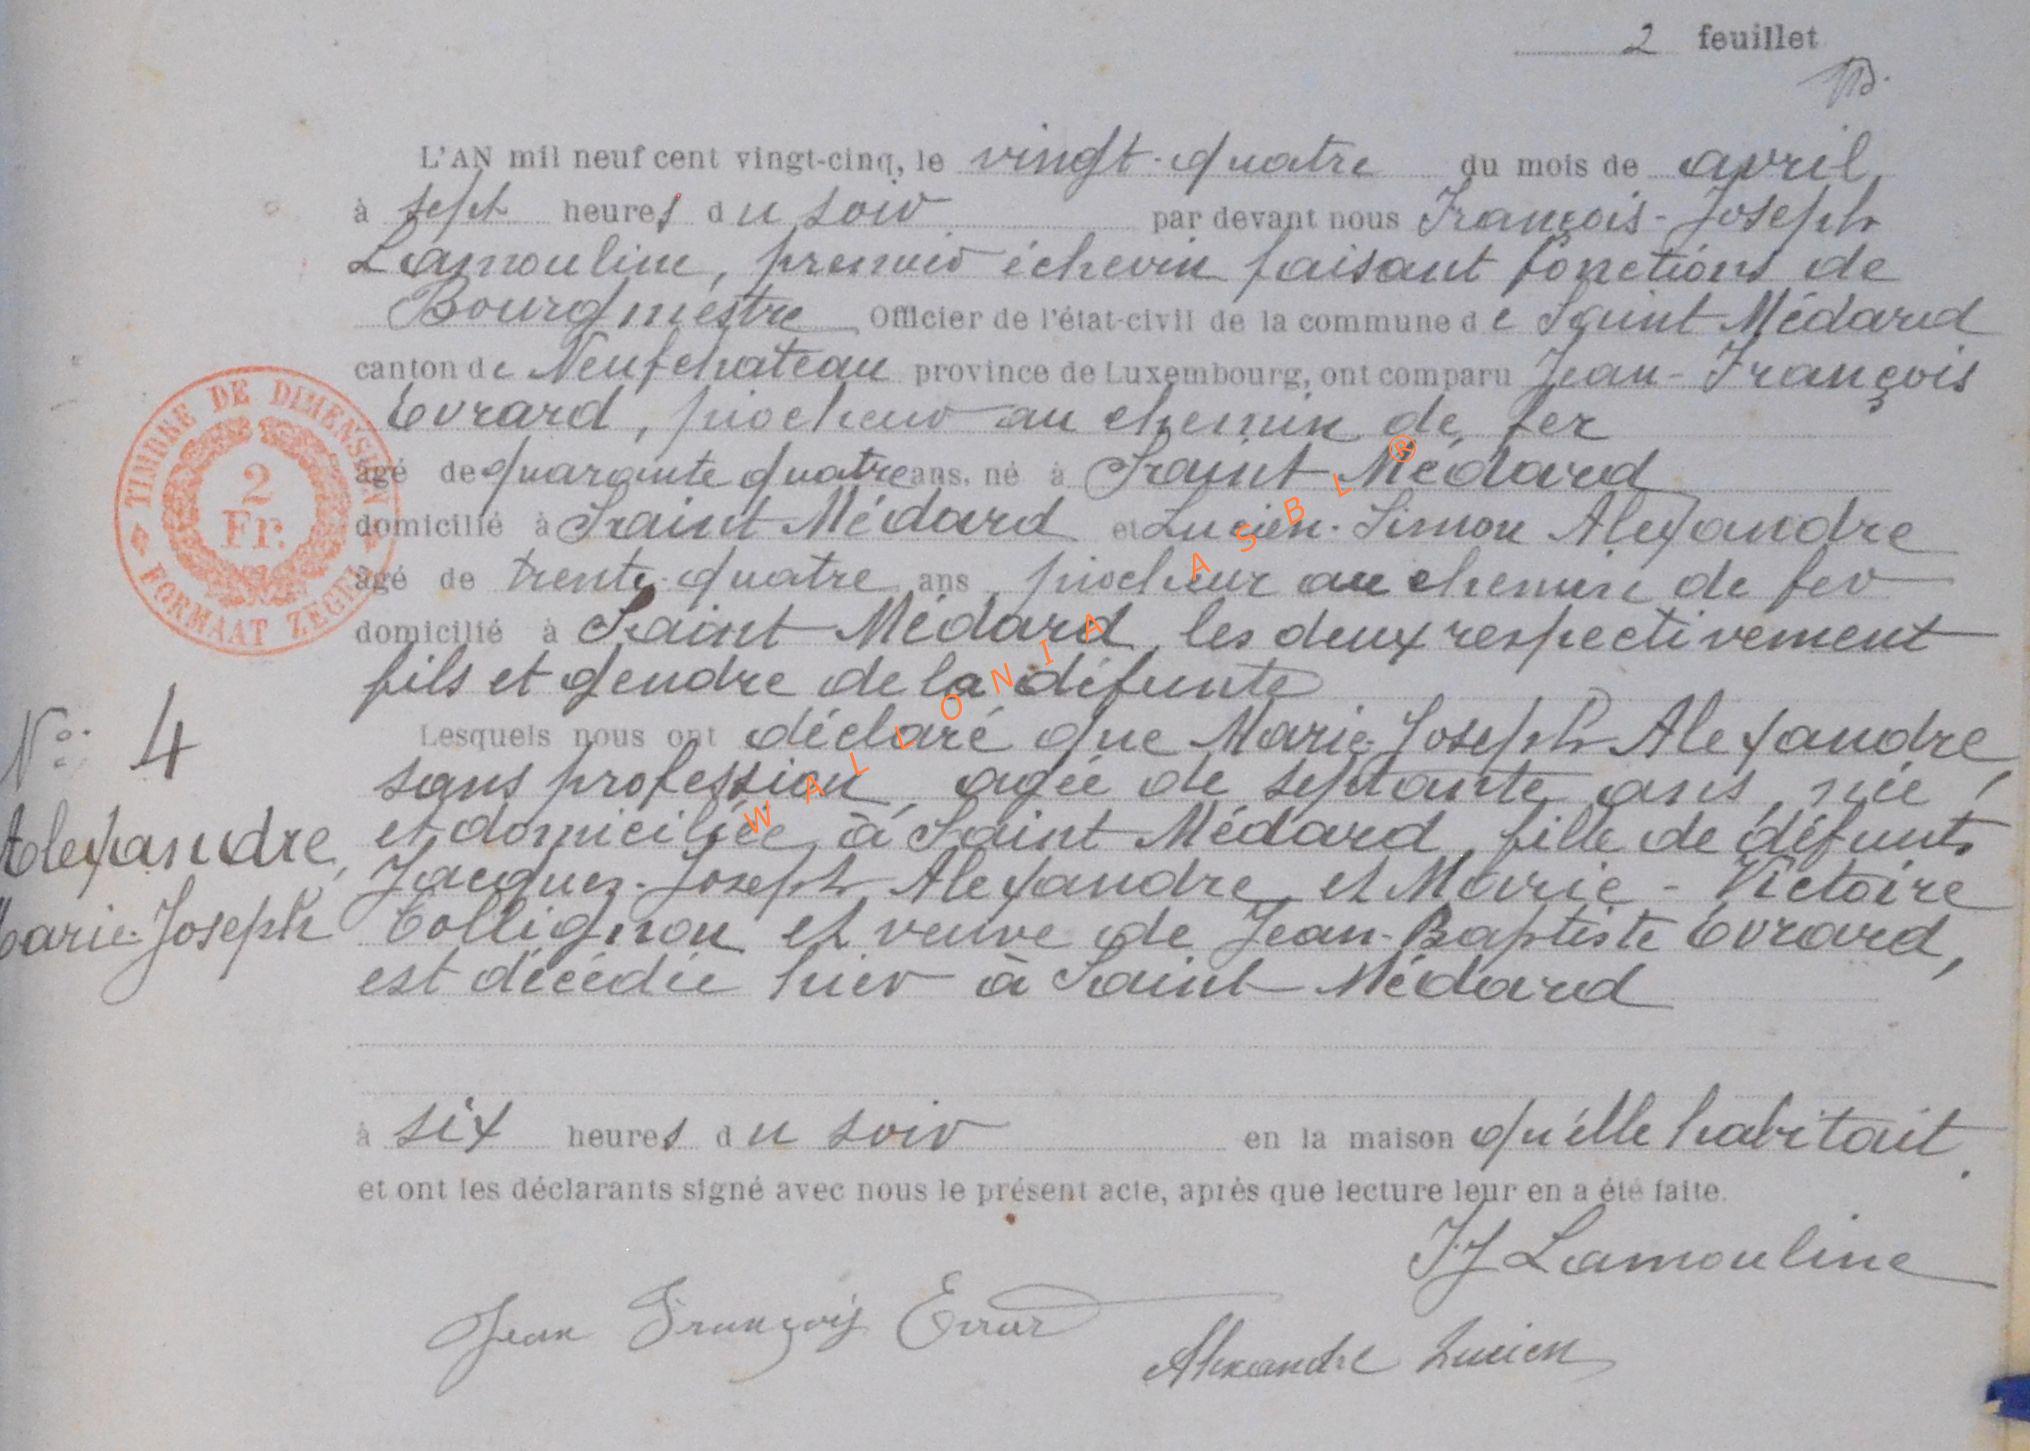 2 feuillet
L'AN mil neuf cent vingt-cinq, le vingt-quatre du mois de avril,
à sept heures du soir par devant nous François-Joseph
Lamouline, premier échevin faisant fonctions de
Bourgmestre Officier de l'état-civil de la commune de Saint Médard
canton de Neufchateau province de Luxembourg, ont comparu Jean-François
Evrard, piocheur au chemin de fer
âgé de quarante quatre ans, né à Saint Médard
domicilié à Saint Médard et Lucien-Simon Alexandre
âgé de trente-quatre ans, piocheur au chemin de fer
domicilié à Saint Médard, les deux respectivement
fils et gendre de la défunte
Lesquels nous ont déclaré que Marie-Joseph Alexandre,
sans profession, agée de septante ans, née
et domiciliée à Saint Médard, fille de défunts
Jacques-Joseph Alexandre et Marie-Victoire
Collignon et veuve de Jean-Baptiste Evrard,
est décédée hier à Saint Médard
à six heures du soir en la maison qu'elle habitait.
et ont les déclarants signé avec nous le présent acte, après que lecture leur en a été faite.
FJ Lamouline
Jean François Evrard
Alexandre Lucien
N°: 4
Alexandre,
Marie-Joseph
TIMBRE DE DIMENSION
2
Fr.
FORMAAT ZEGEL
WALLONIA ASBL ®